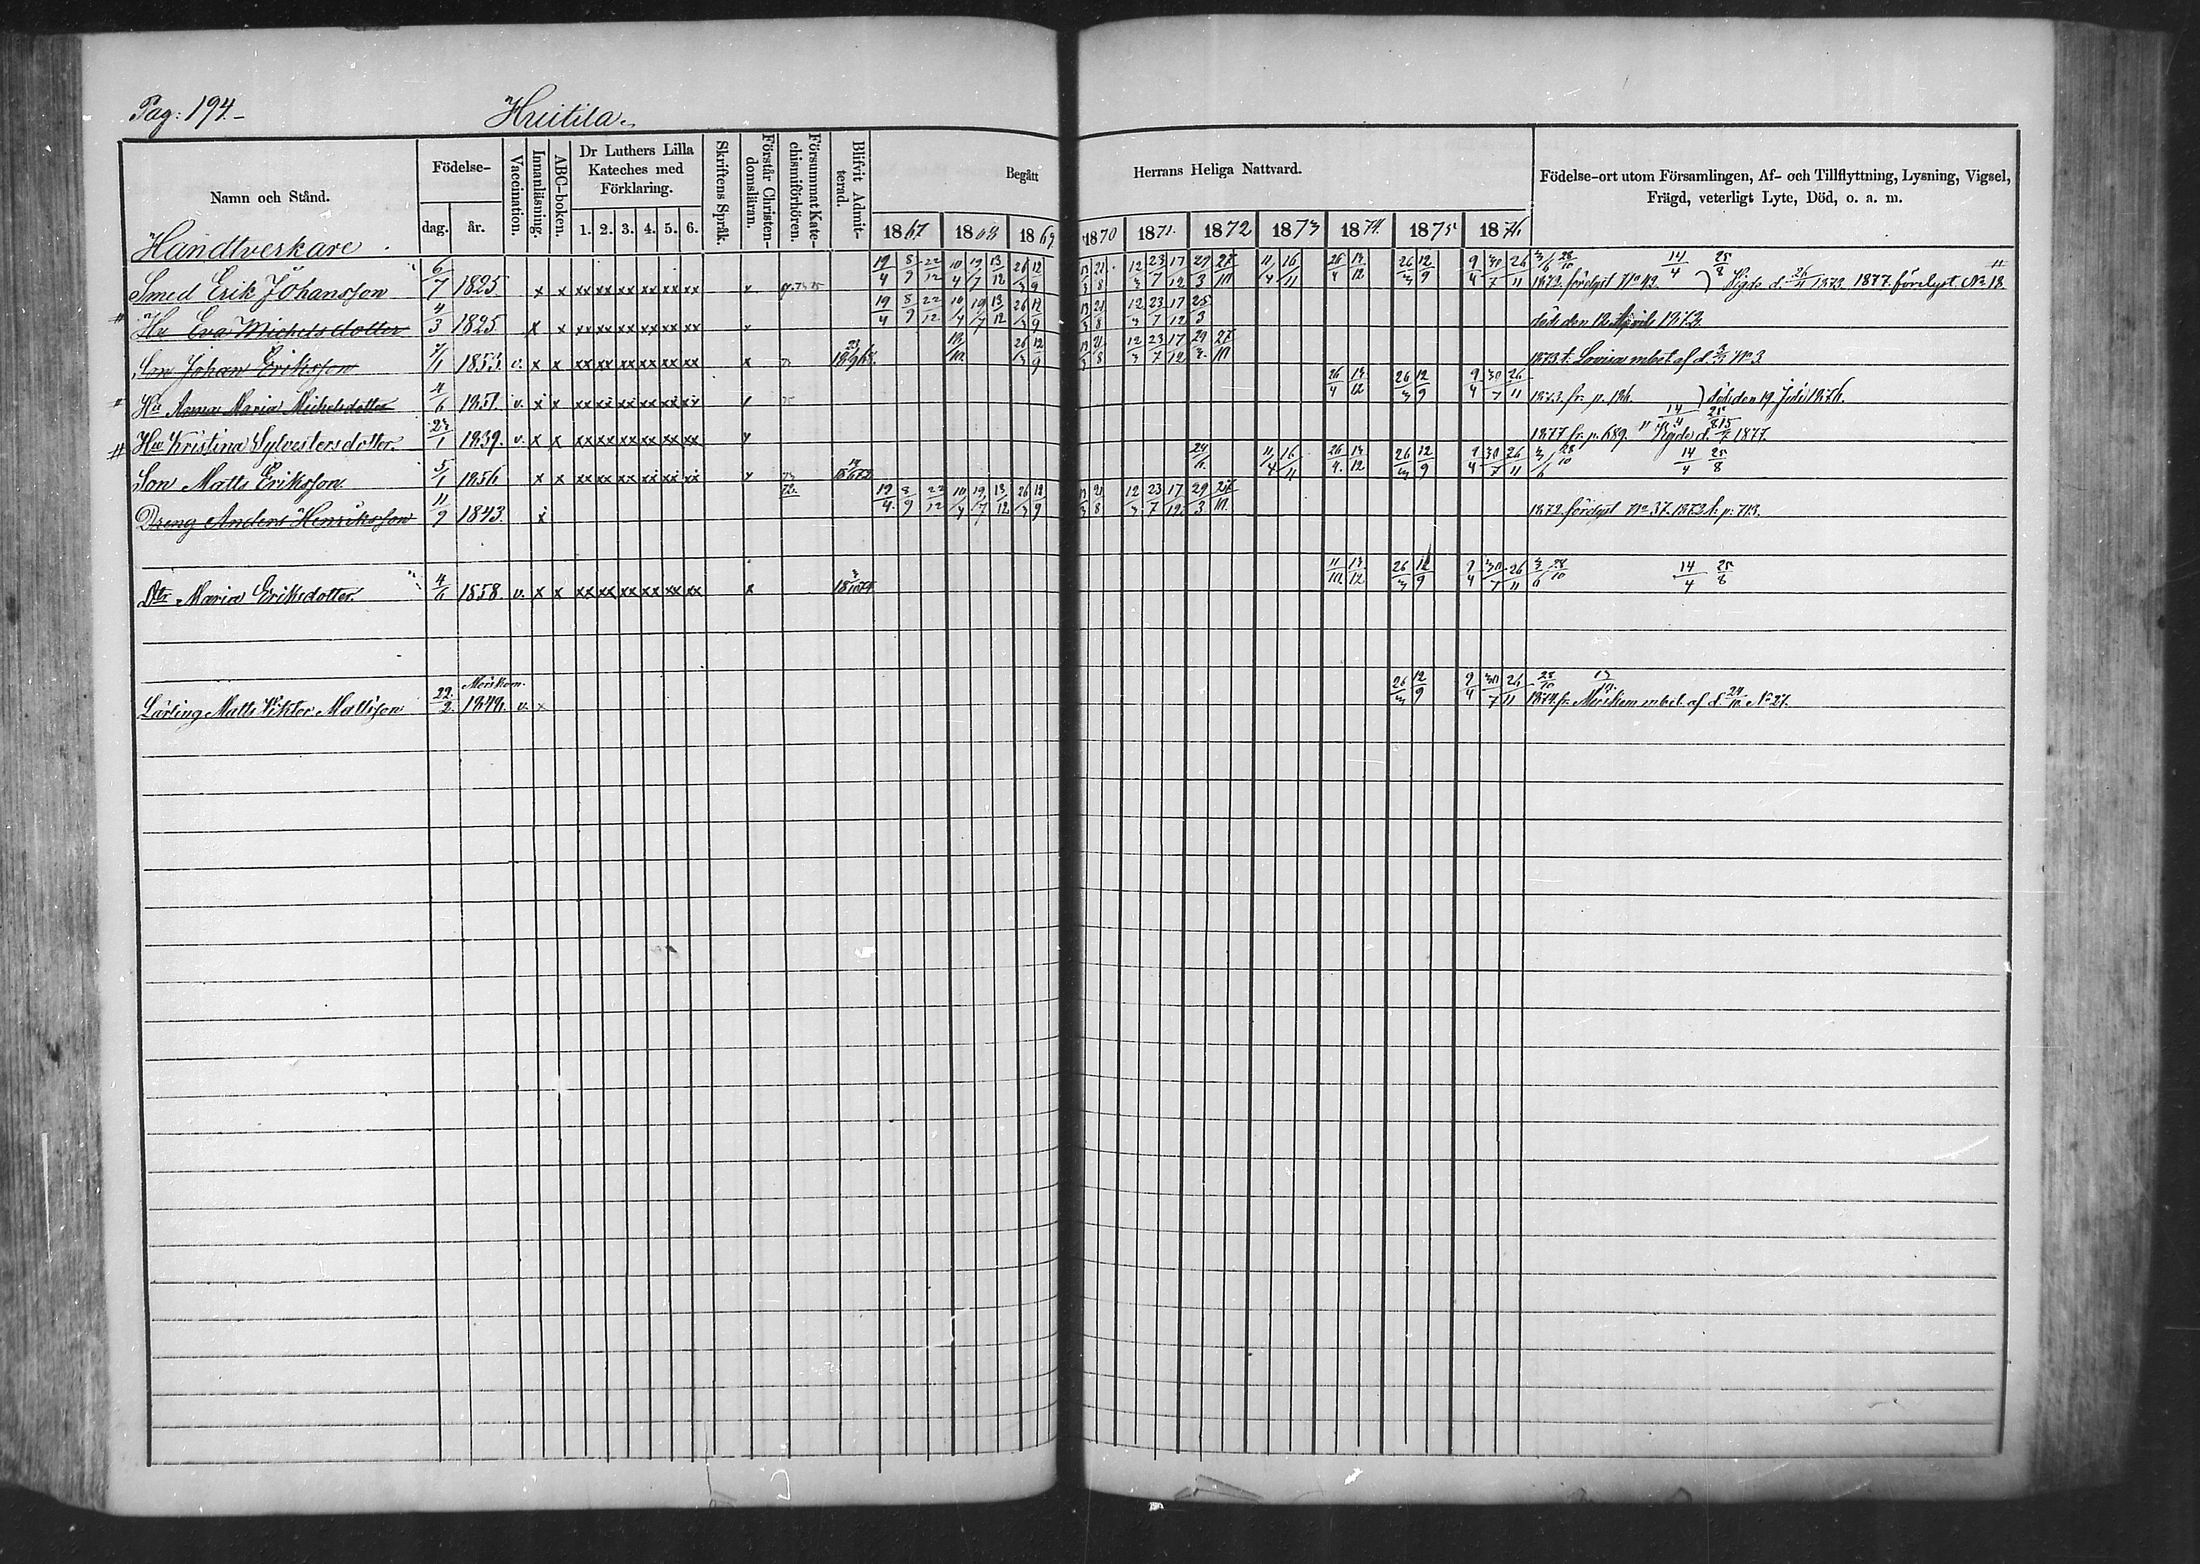 Pag: 194.
Huitila.
Namn och Stånd.
Födelse-
dag.
år.
Vaccination.
Innanläsning.
ABC-boken.
Dr Luthers Lilla
Kateches med
Förklaring.
1. 2. 3. 4. 5. 6.
Skriftens Språk.
Förstår Christen-
domsläran.
Försummat Kate-
chismiförhören.
Blifvit Admit-
terad.
Begått Herrans Heliga Nattvard.
1867. 1868. 1869 1870 1871. 1872 1873 1874. 1875 1876
Födelse-ort utom Församlingen, Af- och Tillflyttning, Lysning, Vigsel,
Frägd, veterligt Lyte, Död, o. a. m.
Handtverkare.
Smed Erik Johansson 6/7 1825. x x xx xx xx xx xx xx x 19/4 8/9 22/12 10/4 19/7 13/12 26/3 12/9 13/3 21/8 12/3 23/7 17/12 29/3 11/4 16/11 26/4 13/12 26/3 12/9 9/4 30/7 26/11 28/10 14/4 25/8 1873. förlyst No 42. Vigde d. 26/11 1873. 1877. förelyst. No 18.
Hu Eva Michelsdotter 4/3 1825. x x xx xx xx xx xx xx x 19/4 8/9 22/12 10/4 19/7 13/12 26/3 12/9 13/3 21/8 12/3 23/7 17/12 25/3 död den 12 April 1873.
Son Johan Eriksson 1853. v. x x xx xx xx xx xx xx x 26/3 12/9 13/3 21/8 12/3 23/7 17/12 1873 t. Lovisa mbet af d. No 3.
Hu Anna Maria Michelsdotter 4/6 1851. v. x x xx xx xx xx xx xx 26/4 13/12 26/3 12/9 9/4 30/7 26/11 1873. fr. p. 186. död den 19 Juli 1876.
Hu Kristina Sylvestersdotter. 23/1 1839. v. x x xx xx xx xx xx xx 14/4 25/8 1877 fr. p. 689. Vigde d. 1877.
Son Matts Eriksson 5/1 1856 x x xx xx xx xx xx xx 11/4 16/11 26/4 13/12 26/3 12/9 9/4 30/7 26/11 3/6 28/10 14/4 25/8
Dreng Anders Henriksson 11/9 1843. x 19/4 8/9 22/12 10/4 19/7 13/12 26/3 12/9 13/3 21/8 12/3 23/7 17/12 29/3 1872 förlyst No 37. 1872 t. p. 713.
Dtr Maria Eriksdotter. 4/6 1858. v. x x xx xx xx xx xx xx x 11/10 13/12 26/3 12/9 9/4 30/7 26/11 3/6 28/10 14/4 25/8
Lärling Matts Viktor Mattsson 22/2 Mörskom. 1849. v. x 26/3 12/9 9/4 30/7 26/11 28/10 1874. fr. Mörskom mbet. af d. 24/10 No 27.